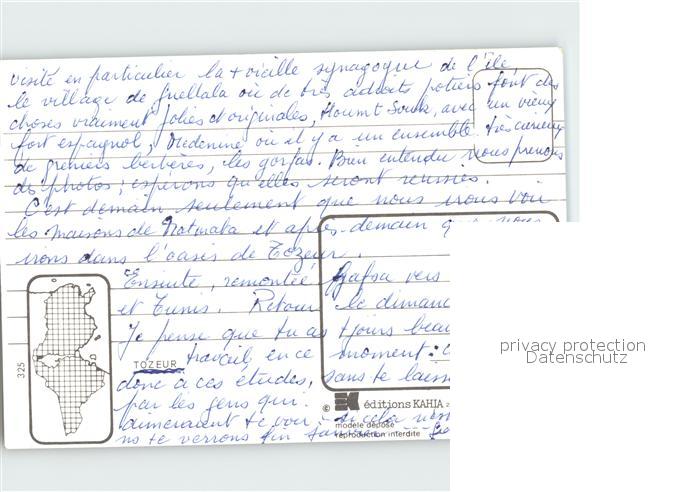 visité en particulier la + vieille synagogue de l'île,
le village de Guellala où de très adroits potiers font des
choses vraiment jolies et originales, Houmt Souk, avec un vieux
fort espagnol, Médenine où il y a un ensemble très curieux
de greniers berbères, les gorfas. Bien entendu nous prenons
des photos, espérons qu'elles seront réussies.
C'est demain seulement que nous irons voir
les maisons de Matmata et après-demain que nous
irons dans l'oasis de Tozeur.
Ensuite, remontée Gafsa vers
et Tunis. Retour le dimanc
Je pense que tu as tjours beau
TOZEUR travail, en ce moment :
donc à ces études, sans te laiss
par les gens qui
aimeraient te voir ; si cela
no te verrons fin janvier
325
© éditions KAHIA 2
modèle déposé
reproduction interdite
privacy protection
Datenschutz